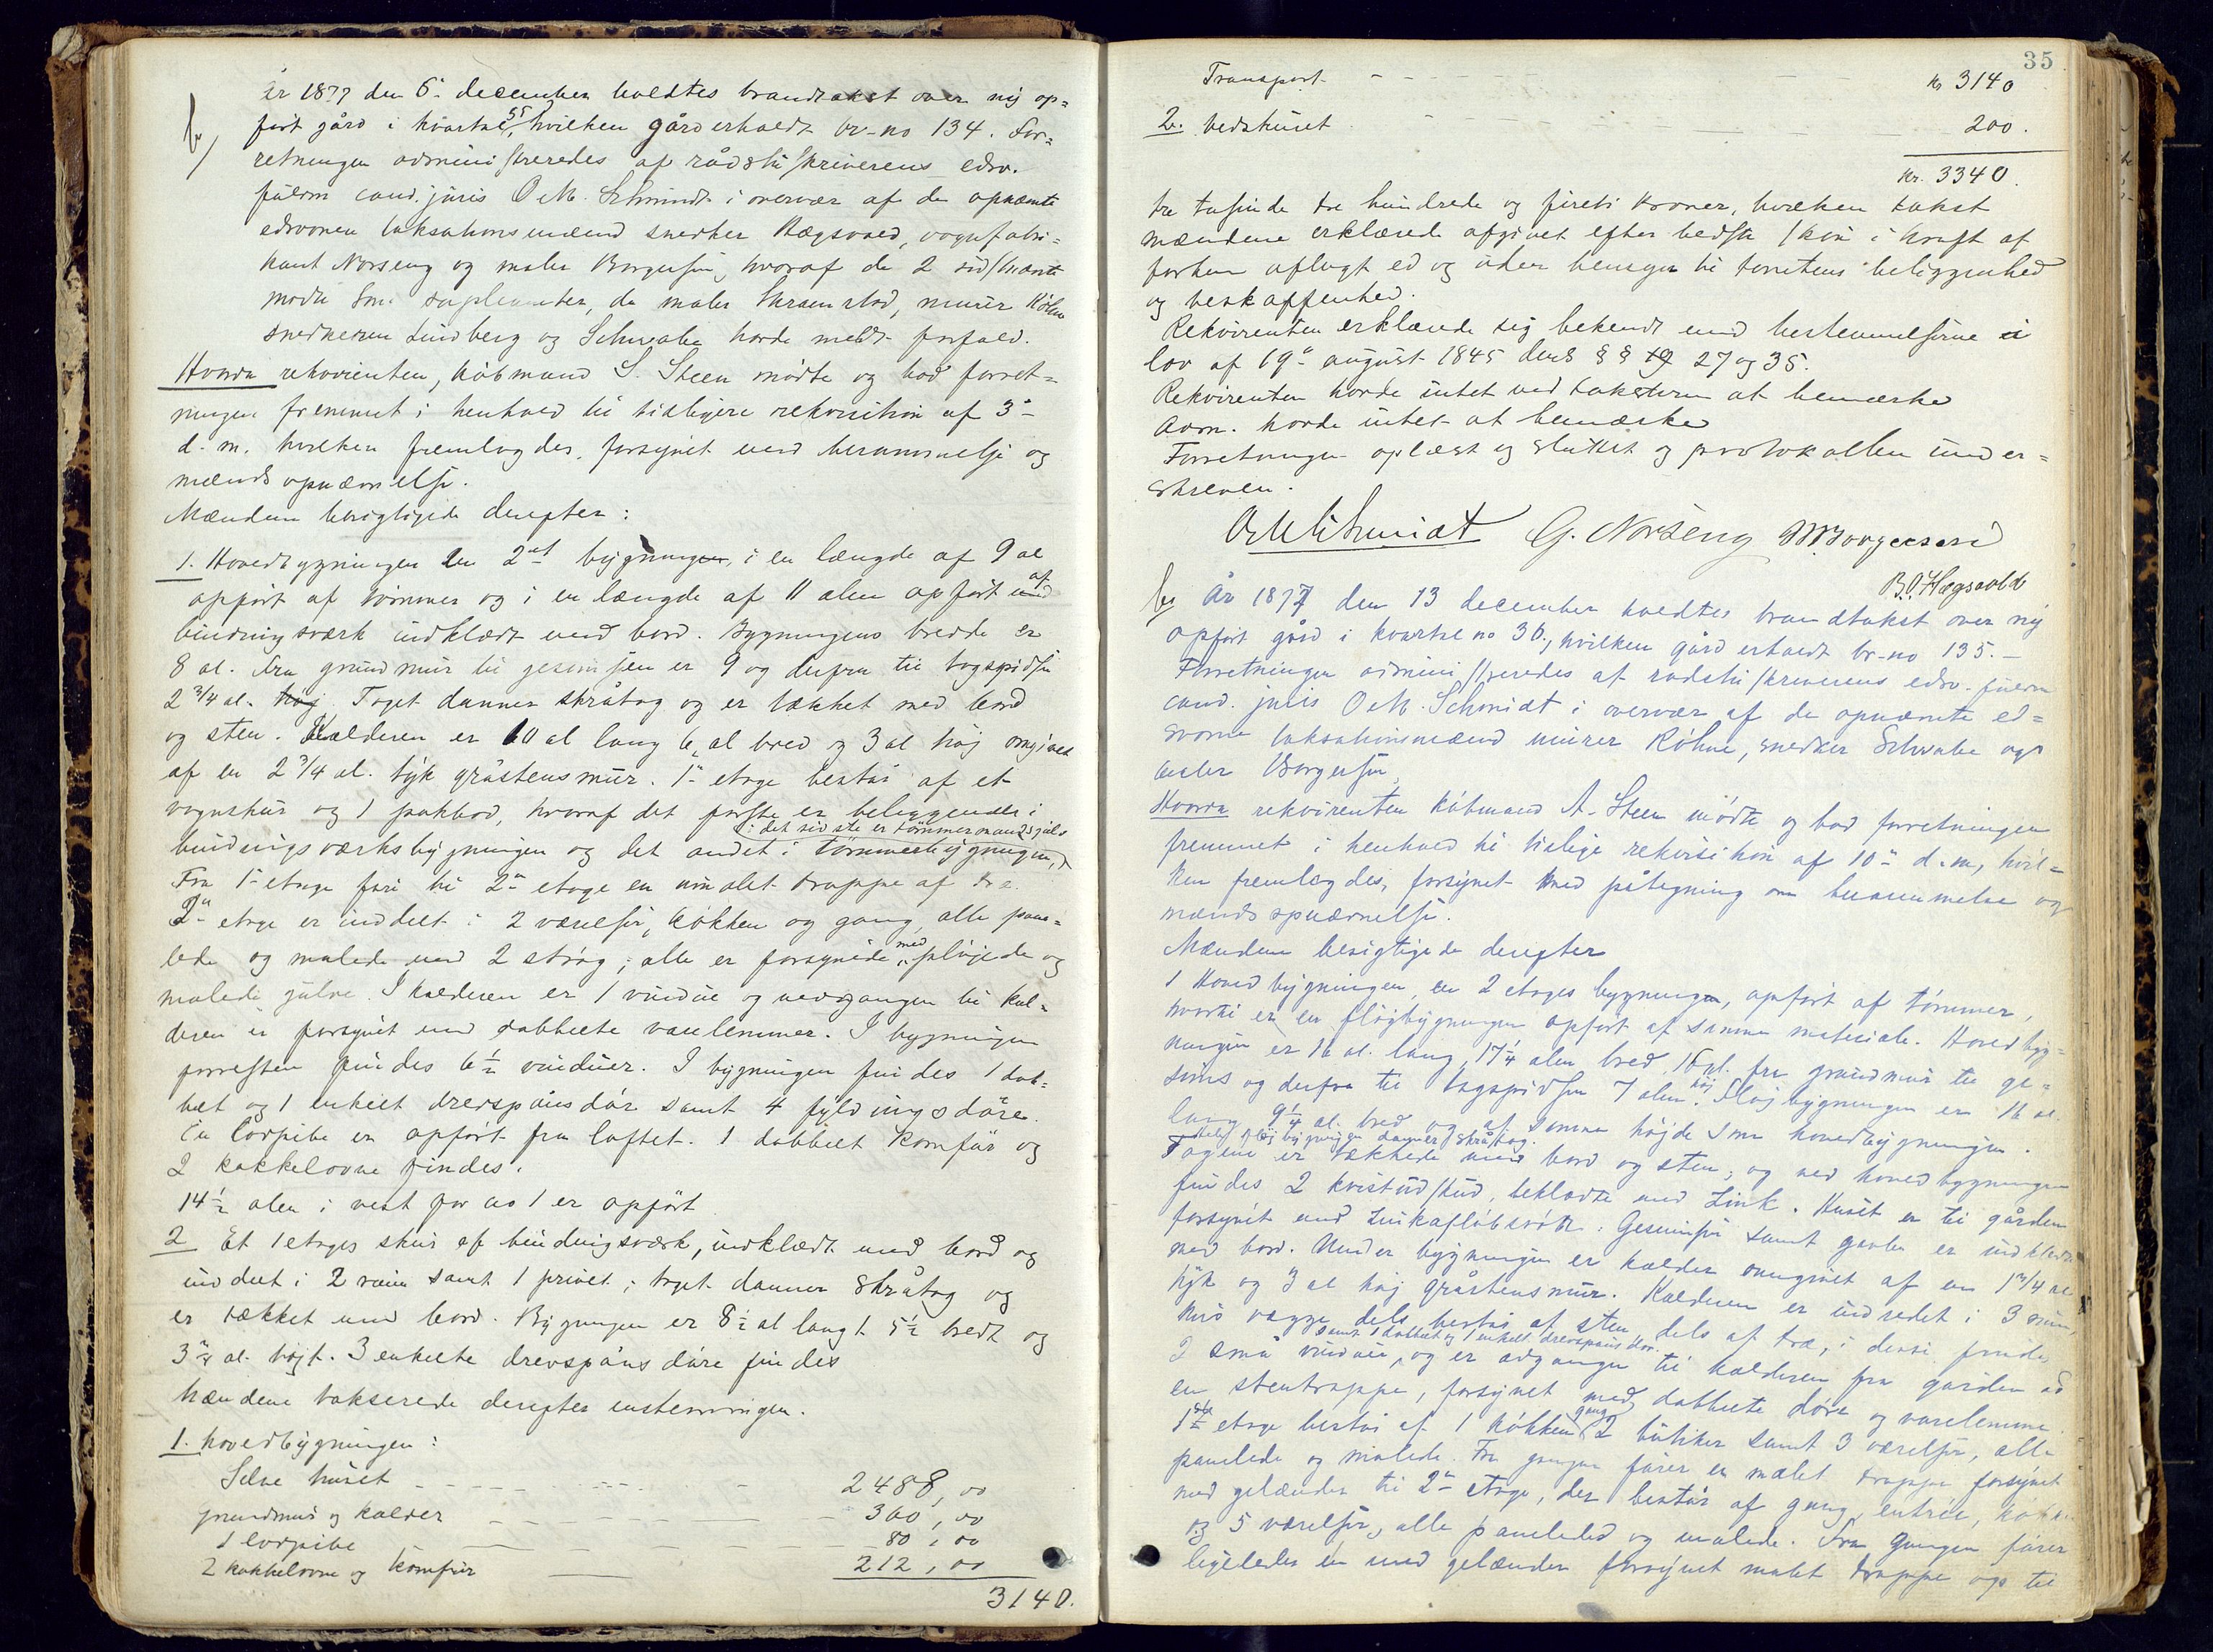 År 1877 den 6te december holdtes brandtakst over ny op=
ført gård i kvartal 35, hvilken gård erholdt br-no 134. For=
retningen administreredes af rådstuskriverens edsv.
fuldm cand. juris O M. Schmidt i overvær af de opnævnte
edsvorne taksationsmænd snedker Hægsvold, vognfabri=
kant Norseng og maler Borgersen, hvoraf de 2 sidstnævnte
mødte som suplianter, da maler Skramstad, murer Köhn
snedkerne Lindberg og Schwabe havde meldt forfald.
Hvorda rekvirenten, købmand S. Steen mødte og bad forret=
ningen fremmet i henhold til tidligere rekvisition af 3die
d. m. hvilken fremlagdes, forsynet med berammelse og
mændsopnævnelse.
Mændene besigtigede derefter:
1. Hovedbygningen en 2et bygningen, i en længde af 9 al
opført af tømmer og i en længde af 11 alen opført af
bindingsværk indklædt med bord. Bygningens bredde er
8 al. Fra grundmur til gesimsen er 9 og derfra til tagspidsen
2 3/4 al. høj Taget danner skråtag og er tækket med bord
og sten. Kælderen er 10 al lang 6 al bred og 3 al høj omgivet
af en 2 3/4 al. tyk gråstensmur. 1ste etage består af et
vognskur og 1 pakbod, hvoraf det første er beliggende i
bindingsværksbygningen og det andet i tømmerbygningen,
i det sidste er tømmermandsgulv
Fra 1ste etage føri til 2den etage en umalet trappe af træ.
2den etage er inddelt i 2 værelser, køkken og gang, alle pane=
lede og malede med 2 strøg; alle er forsynede med pløjede og
malede gulve. I kælderen er 1 vindue og nedgangen til kæl=
deren er forsynet med dobbelte vaselemmer. I bygningen
forresten findes 6 1/2 vinduer. I bygningen findes 1 dob=
belt og 1 enkelt drevspånsdør samt 4 fyldingsdøre.
En lodpibe er opført fra loftet. 1 dobbelt komfur og
2 kakkelovne findes.
14 1/2 alen i vest for no 1 er opført
2 Et 1etages skur af bindingsværk, indklædt med bord og
inddelt i 2 rum samt 1 privet; taget danner skråtag og
er tækket med bord. Bygningen er 8 1/2 al langt 5 1/2 bredt og
3 3/4 al. højt. 3 enkelte drevspåns døre findes
Mændene takserede derefter enstemmigen.
1. Hovedbygningen:
Selve huset 2488,00
grundmur og kælder 360,00
1 lodpibe 80,00
2 kakkelovne og komfur 212,00
3140.
35
Transport Kr 3140
2. Vedskuret 200.
Kr. 3340.
tre tusinde tre hundrede og fireti kroner, hvilken takst
mændene erklærede afgivet efter bedste skøn i kraft af
forhen aflagt ed og uden hensyn til tomtens beliggenhed
og beskaffenhed.
Rekvirenten erklærede sig bekendt med bestemmelserne i
lov af 19de august 1845 dens §§ 27 og 35.
Rekvirenten havde intet ved taksten at bemærke
Adm. havde intet at bemærke
Forretningen oplæst og sluttet og protokollen under=
skreven.
O M Schmidt G. Norseng M Borgersen
B.O. Hægsvold
År 1877 den 13 december holdtes brandtakst over ny
opført gård i kvartal no 36, hvilken gård erholdt br-no 135.
Forretningen administreredes af rådstuskriverens edsv. fuldm
cand. juris O M. Schmidt i overvær af de opnævnte ed=
svorne taksationsmænd murer Köhn, snedker Schwabe og
maler Borgersen,
Hvorda rekvirenten købmand A. Steen mødte og bad forretningen
fremmet i henhold til tidlige rekvisition af 10de d. m, hvil=
ken fremlagdes, forsynet med påtegning om berammelse og
mændsopnævnelse.
Mændene besigtigede derefter
1 Hovedbygningen, en 2 etages bygningen, opført af tømmer,
hvortil er en fløjbygningen opført af samme materiale. Hovedbyg=
ningen er 16 al. lang, 17 1/4 alen bred, 15 al. fra grundmur til ge=
sims og derfra til tagspidsen 7 alen høj. Fløjbygningen er 16 al
lang 9 1/4 al. bred og af samme højde som hovedbygningen.
fløjbygningen danner skråtag.
Tagene er tækkede med bord og sten; og ved hovedbygningen
findes 2 kvistudskud, beklædte med Zink. Huset er til gården
forsynet med Zinkafløbsrør. Gesimser samt gavler er indklædte
med bord. Under bygningen er kælder omgivet af en 1 3/4 al
tyk og 3 al høj gråstensmur. Kælderen er indredet i 3 rum,
hvis vægge dels består af sten dels af træ, i disse findes
samt 1 dobbelt og 1 enkelt drevspåns dør.
2 små vinduer, og er adgangen til kælderen fra gården ad
en stentrappe, forsynet med dobbelte døre og vaselemme.
1ste etage består af 1 køkken gang 2 butiker samt 3 værelser, alle
panelede og malede. Fra gangen fører en malet trappe forsynet
med gelænder til 2den etage, der består af gang, entrée, køkken
og 5 værelser, alle panelede og malede. Fra gangen fører
ligeledes en med gelænder forsynet malet trappe op til